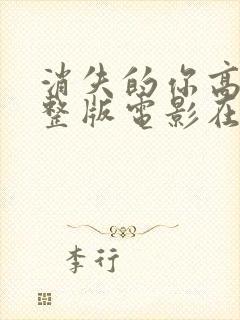 消失的你高
整版电影在
李行